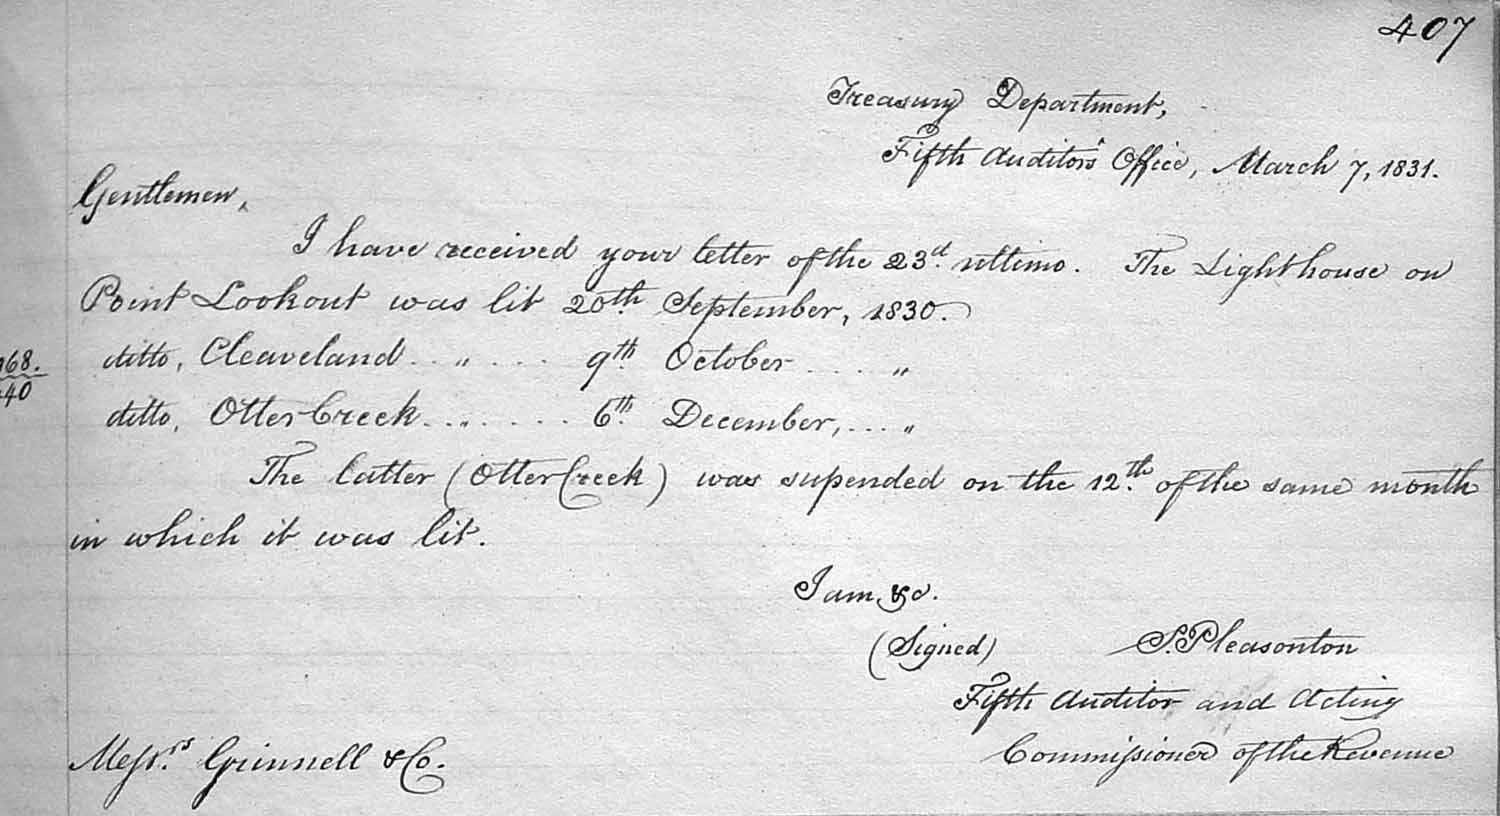 407
Treasury Department,
Fifth Auditor's Office, March 7, 1831.
Gentlemen,
I have received your letter of the 23d. ultimo. The Lighthouse on
Point Lookout was lit 20th. September, 1830.
ditto, Cleaveland .. „ .... 9th. October .... „
168.
440
ditto, Otter Creek .. „ .... 6th. December, ... „
The latter (Otter Creek) was supended on the 12th. of the same month
in which it was lit.
I am, &c.
(Signed) S. Pleasonton
Fifth Auditor and Acting
Commissioner of the Revenue
Messrs. Grinnell & Co.